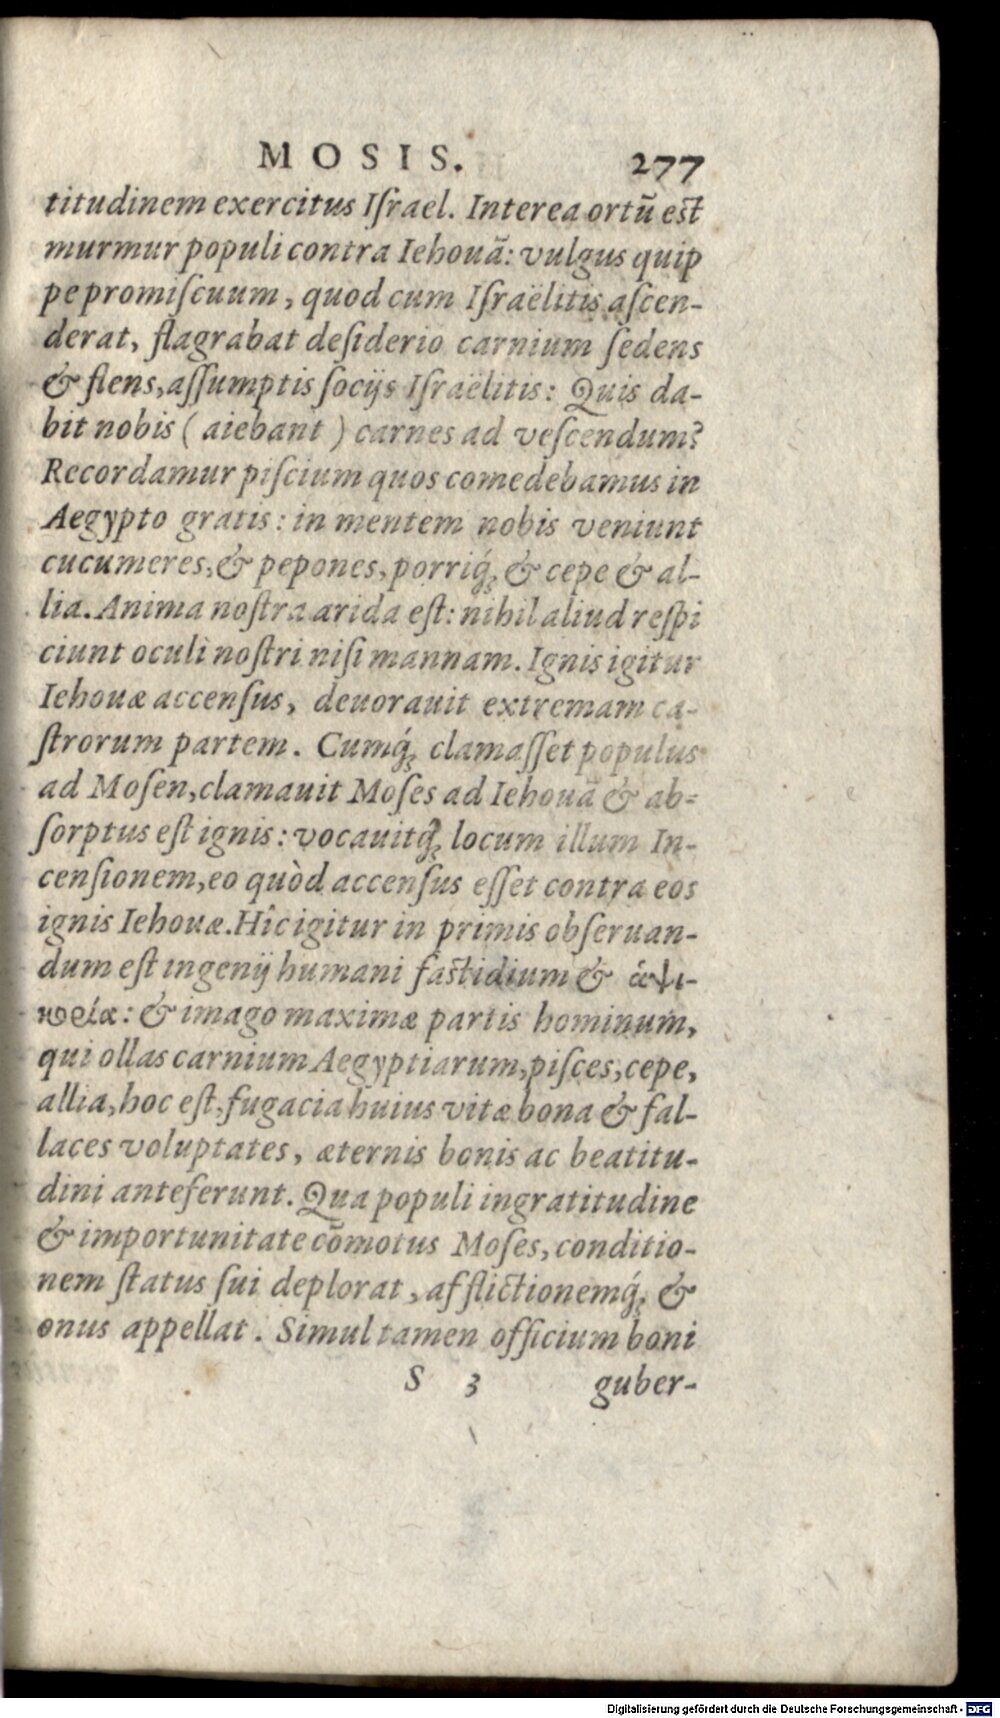 MOSIS. 277
titudinem exercitus Iſrael. Interea ortū eſt
murmur populi contra Iehouā: vulgus quip
pe promiſcuum, quod cum Iſraëlitis aſcen-
derat, flagrabat deſiderio carnium ſedens
& flens, aſſumptis ſocijs Iſraëlitis: Quis da-
bit nobis ( aiebant ) carnes ad veſcendum?
Recordamur piſcium quos comedebamus in
Aegypto gratis: in mentem nobis veniunt
cucumeres, & pepones, porriq́; & cepe & al-
lia. Anima noſtra arida eſt: nihil aliud reſpi
ciunt oculi noſtri niſi mannam. Ignis igitur
Iehouæ accenſus, deuorauit extremam ca-
ſtrorum partem. Cumq́; clamaſſet populus
ad Moſen, clamauit Moſes ad Iehouā & ab-
ſorptus eſt ignis: vocauitq́; locum illum In-
cenſionem, eo quòd accenſus eſſet contra eos
ignis Iehouæ. Hîc igitur in primis obſeruan-
dum eſt ingenij humani faſtidium & ἁψι-
κορία: & imago maximæ partis hominum,
qui ollas carnium Aegyptiarum, piſces, cepe,
allia, hoc eſt, fugacia huius vitæ bona & fal-
laces voluptates, æternis bonis ac beatitu-
dini anteferunt. Qua populi ingratitudine
& importunitate cōmotus Moſes, conditio-
nem ſtatus ſui deplorat, afflictionemq́; &
onus appellat. Simul tamen officium boni
S 3 guber-
Digitalisierung gefördert durch die Deutsche Forschungsgemeinschaft - DFG